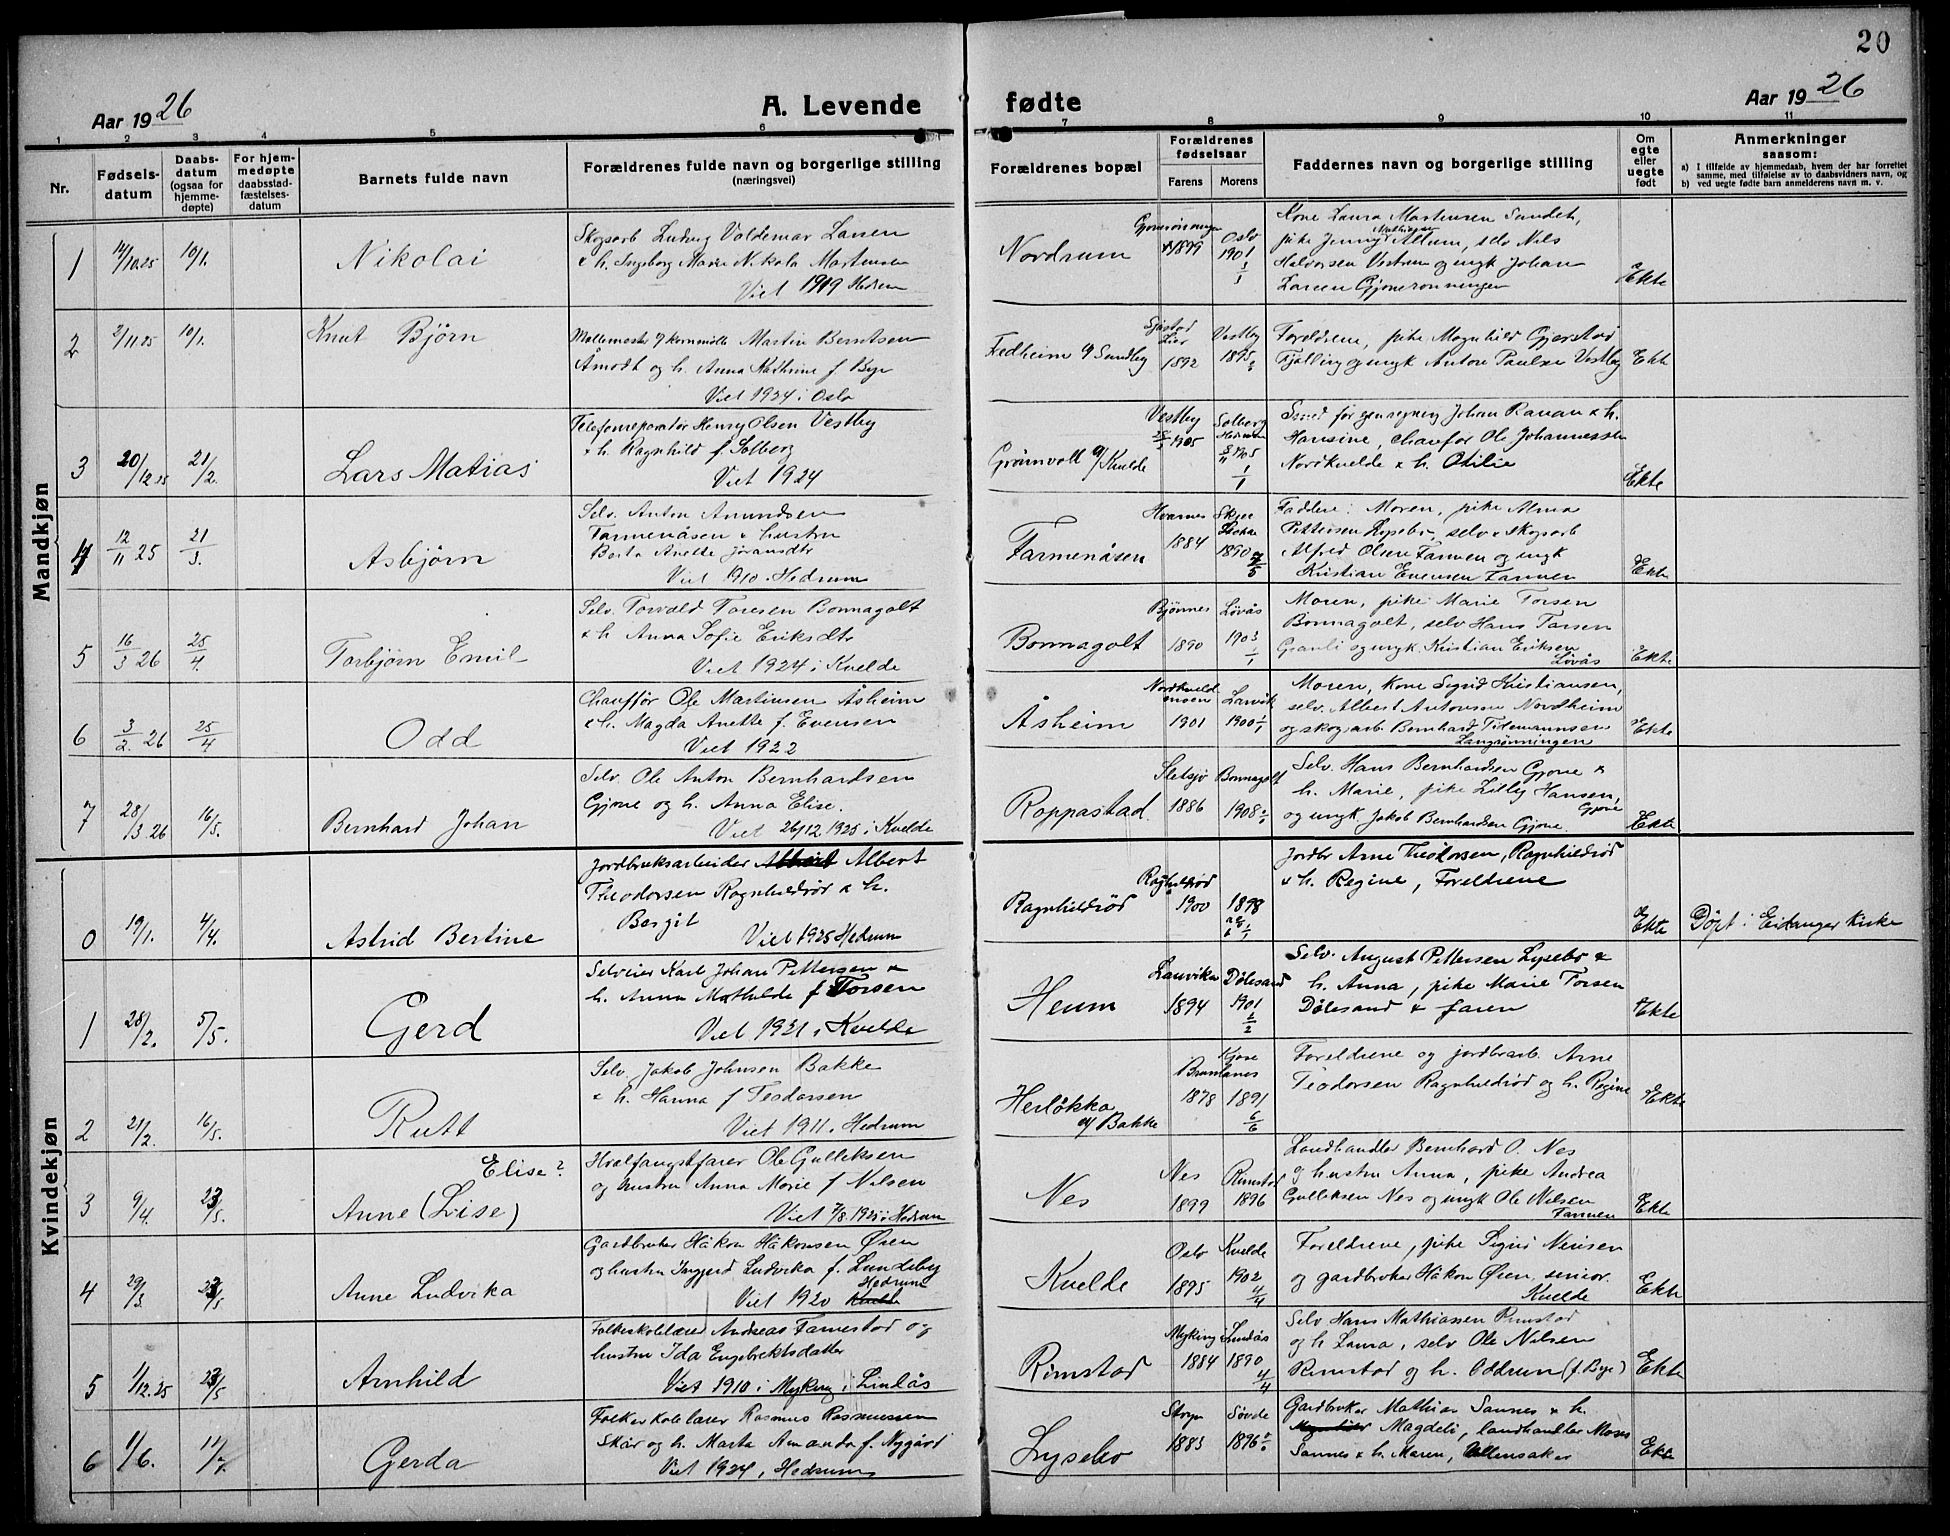 20
Aar 1926
A. Levende
fødte
Aar 1926
1 2 3 4 5 6 7 8 9 10 11
Nr.
Fødsels-
datum
Daabs-
datum
(ogsaa for
hjemme-
døpte)
For hjem-
medøpte
daabsstad-
fæstelses-
datum
Barnets fulde navn
Forældrenes fulde navn og borgerlige stilling
(næringsvei)
Forældrenes bopæl
Forældrenes
fødselsaar
Farens
Morens
Faddernes navn og borgerlige stilling
Om
egte
eller
uegte
født
Anmerkninger
saasom:
a) I tilfælde av hjemmedaab, hvem der har forrettet
samme, med tilføielse av to daabsvidners navn, og
b) ved uegte fødte barn anmelderens navn m. v.
Mandkjøn
1 14/10.25 10/1. Nikolai
Skogsarb Ludvig Valdemar Larsen
& h. Ingeborg Marie Nikola Martensen
Viet 1919 Hedrum
Nordrum
1899
Oslo
1901
Kone Laura Martensen Sundet,
pike Jenny Mathisen Allum, selv Nils
Halvorsen Vestrum og ungk Johan
Larsen Gjonerønningen
Ekte
2 2/11.25 10/1. Knut Bjørn
Møllemester v/ kornmølle Martin Berntsen
Åmodt og h. Anna Kathrine f Bye
Viet 1924 i Oslo
Fedheim v/ Sundby
Lier
1892
Vestby
1895
Foreldrene, pike Magnhild Gjerstad
Tjølling og ungk Anton Paulsen Vestby
Ekte
3 20/12.25 21/2. Lars Matias
Telefonreparatør Henry Olsen Vestby
& h. Ragnhild f. Solberg
Viet 1924
Grønvoll v/ Kvelde
Vestby
1905
Solberg
Hedrum
1905
Smed for egen regning Johan Ranan & h.
Hansine, chaufør Ole Johannessen
Nordkvelde & h. Otilie
Ekte
4 12/11 25 21/3. Asbjørn
Selv. Anton Amundsen
Farmenåsen & hustru
Berta Anette Jøransdtr
Viet 1910. Hedrum
Farmenåsen
Hvarnes
1884
1890
Faddere: Moren, pike Alma
Pettersen Lysebo, selv & skogsarb
Alfred Olsen Farmen og ungk
Kristian Evensen Farmen
Ekte
5 16/3 26 25/4. Torbjørn Emil
Selv. Torvald Toresen Bonnagolt
& h Anna Sofie Eriksdtr
Viet 1924 i Kvelde
Bonnagolt
Bjønnes
1890
Løvås
1903
1/1
Moren, pike Marie Torsen
Bonnagolt, selv Hans Torsen
Granli og ungk. Kristian Eriksen
Løvås
Ekte
6 3/2. 26 25/4 Odd
Chauffør Ole Martinsen Åsheim
& h. Magda Anette f. Evensen
Viet 1922
Åsheim
1901
Larvik
1900 1/1
Moren, Kone Sigrid Kristiansen,
selv. Albert Antonsen Nordheim
og skogsarb Bernhard Tidemannsen
Langrønningen
Ekte
7 28/3 26 16/5. Bernhard Johan
Selv. Ole Anton Bernhardsen
Gjone og h. Anna Elise.
Viet 26/12.1925 i Kvelde
Roppastad
Sletsjø
1886
Bonnagolt
1908
Selv. Hans Bernhardsen Gjone &
h. Marie, pike Lilly Hansen,
Gjone
og ungk Jakob Bernhardsen Gjone.
Ekte
Kvindekjøn
0 19/1. 4/4. Astrid Bertine
Jordbruksarbeider Albert
Theodorsen Ragnhildrød & h.
Bergit
Viet 1925 Hedrum
Ragnhildrød
Ragnhildrød
1900
1898
Jordbr Arne Theodorsen, Ragnhildrød
& h. Regine, Foreldrene
Ekte
Døpt i Eidanger kirke
1 28/2. 5/5. Gerd
Selveier Karl Johan Pettersen &
h. Anna Mathilde f Torsen
Viet 1921 i Kvelde
Heum
Larvik
1894
Dølesand
1901
2/2
Selv. August Pettersen Lysebo &
h. Anna, pike Marie Torsen
Dølesand & faren
Ekte
2 21/2. 16/5. Rutt
Selv. Jakob Johnsen Bakke
& h. Hanna f Teodorsen
Viet 1911. Hedrum
Herløkka
v/ Bakke
Brunlanes
1878
Kjose
1891
6/6
Foreldrene og jordbrarb. Arne
Teodorsen Ragnhildrød og h. Regine
Ekte
3 9/4. 23/5. Elise?
Anne (Lise)
Hvalfangstfarer Ole Gulleksen
og hustru Anna Marie f Nilsen
Viet 7/8.1925 i Hedrum
Nes
Nes
1899
Rimstad
1896
Landhandler Bernhard O. Nes
og hustru Anna, pike Andrea
Gulleksen Nes og ungk Ole Nilsen
Farmen
Ekte
4 29/3. 23/5 Anne Ludvika
Gardbruker Håkon Håkonsen Øien
og hustru Ingjerd Ludvika f. Lundeby
Hedrum
Viet 1920 Kvelde
Kvelde
Oslo
1895
Kvelde
1902
4/4
Foreldrene, pike Sigrid Nensen
og gardbruker Håkon Øien, senior.
Kvelde
Ekte
5 1/12.25 23/5 Arnhild
Folkeskolelærer Andreas Farnestad og
hustru Ida Engebrektsdatter
Viet 1910 i Myking i Lindås
Rimstad
Myking i
1884
Lindås
1890
4/4
Selv Hans Mathiassen Rimstad
og h Laura, selv Ole Nilsen
Rimstad og h. Oddrun (f. Bye)
Ekte
6 1/6. 11/7. Gerda
Folkeskolelærer Rasmus Rasmussen
Skår og h. Marta Amanda f. Nygård
Viet 1924 i Hedrum
Lysebo
Stryn
1883
Søvde
1896
Gardbruker Mathias Sannes & h.
Magdeli, landhandler Moses
Sannes & h. Maren, Ullensaker
Ekte